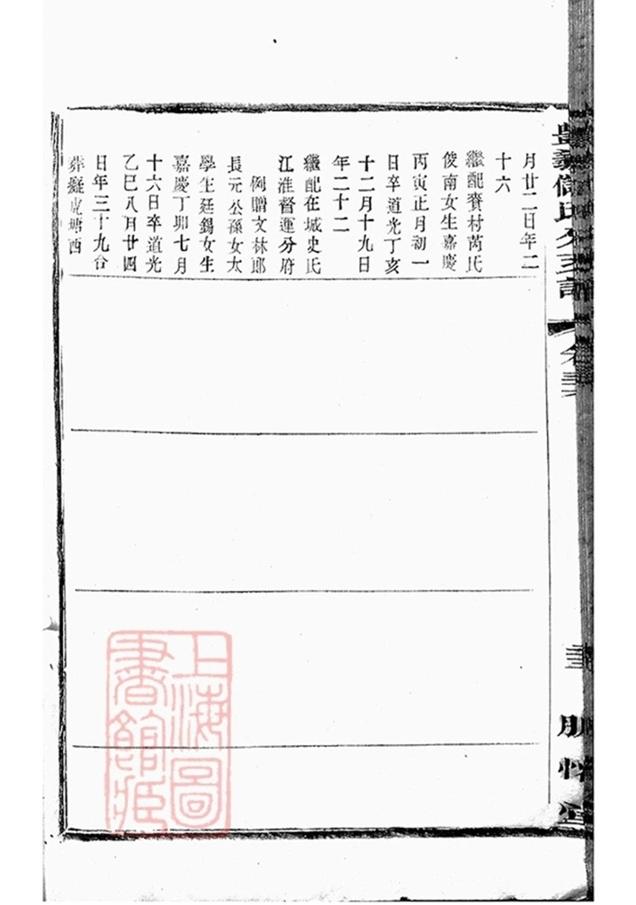 月廿二日年二
十六
繼配賽村芮氏
俊南女生嘉慶
丙寅正月初一
日卒道光丁亥
十二月十九日
年二十二
繼配在城史氏
江淮督運分府
例贈文林郎
長元公孫女太
學生廷錫女生
嘉慶丁卯七月
十六日卒道光
乙巳八月廿四
日年三十九合
葬蟻虎塘西
氏分支譜
上海圖
書館藏